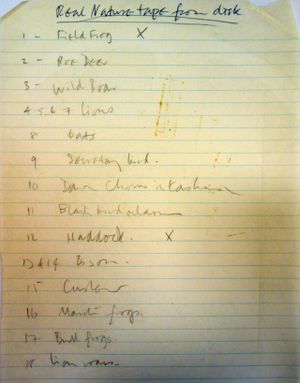 Real Nature tape from disk
1 - Field Frog X
2 - Roe Deer
3 - Wild Boar
4 5, 6 7 Lions
8 Bats
9 Secretary bird.
10 Dawn Chorus in Kashmir
11 Blackbird alarm
12 Haddock. X
13 & 14 Bison.
15
16 Marsh frogs.
17 Bull frogs.
18 Lion roars